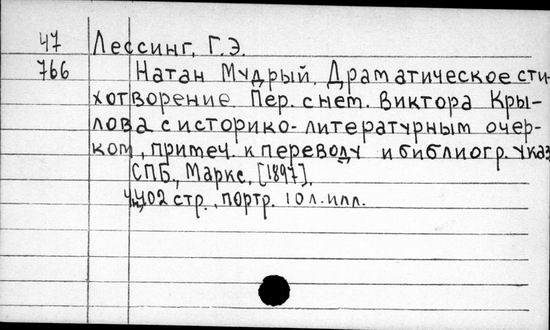 47 Лессинг, Г.Э.
766 Натан Мудрый. Драматическое сти-
хотворение. Пер. с нем. Виктора Кры-
лова с историко-литературным очер-
ком, примеч. к переводу и библиогр. указ.
СПБ., Маркс, [1897].
402 стр., портр. 10 л. илл.